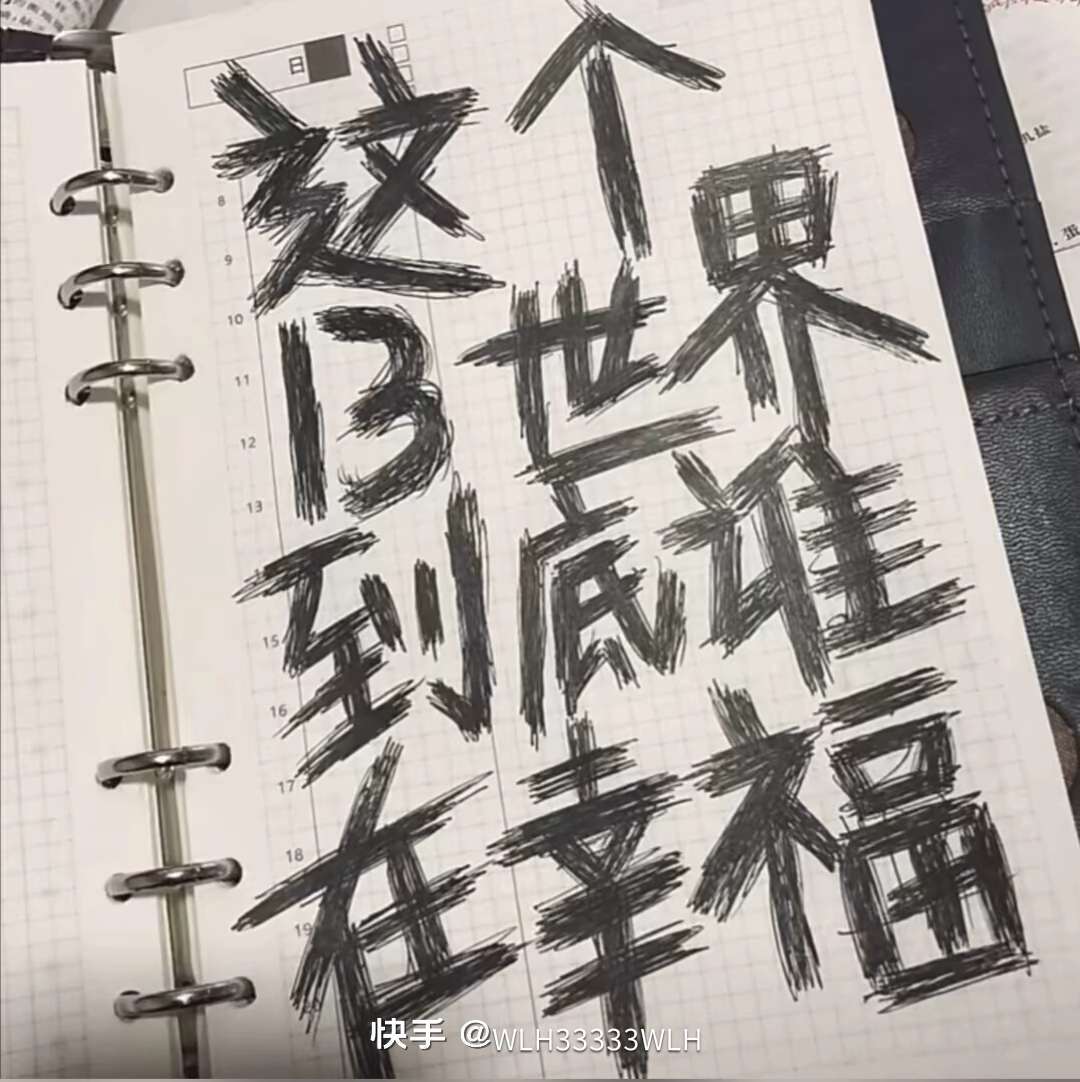 日
这个
B世界
到底谁
在幸福
8
9
10
11
12
13
15
16
17
18
19
快手 @WLH33333WLH